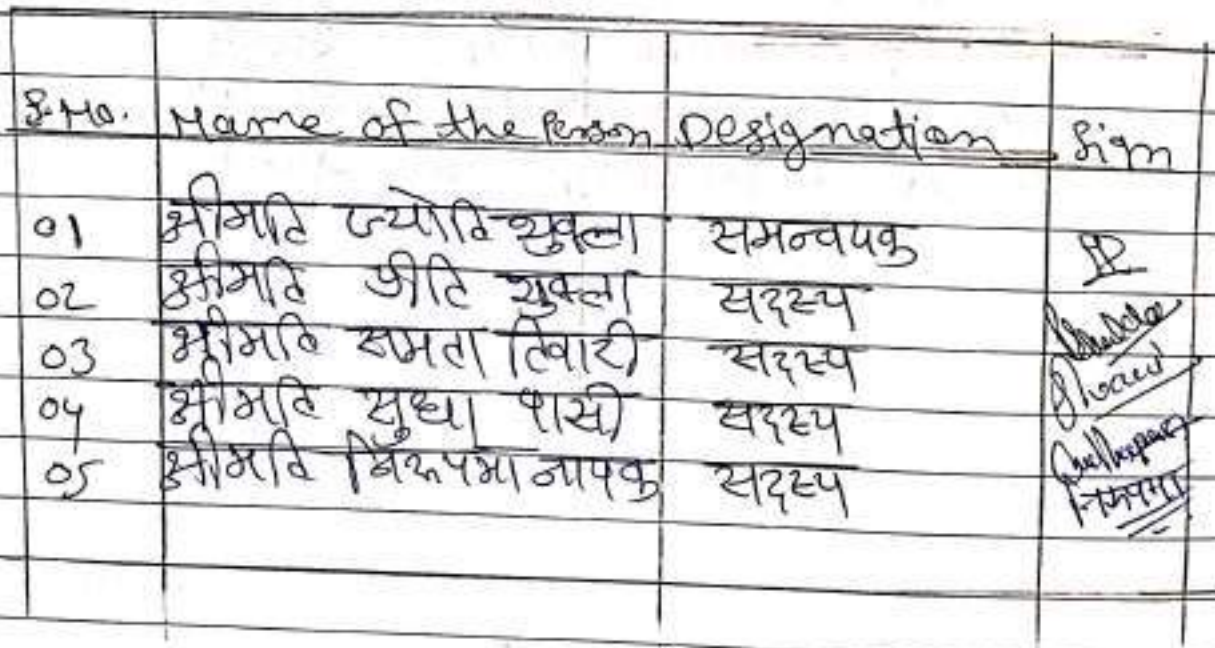 S.No. Name of the Person Designation Sign
01 श्रीमति ज्योति शुक्ला समन्वयक
02 श्रीमति प्रीति शुक्ला सदस्य
03 श्रीमति ममता तिवारी सदस्य
04 श्रीमति सुधा सदस्य
05 श्रीमति निरूपमा नायक सदस्य निरूपमा